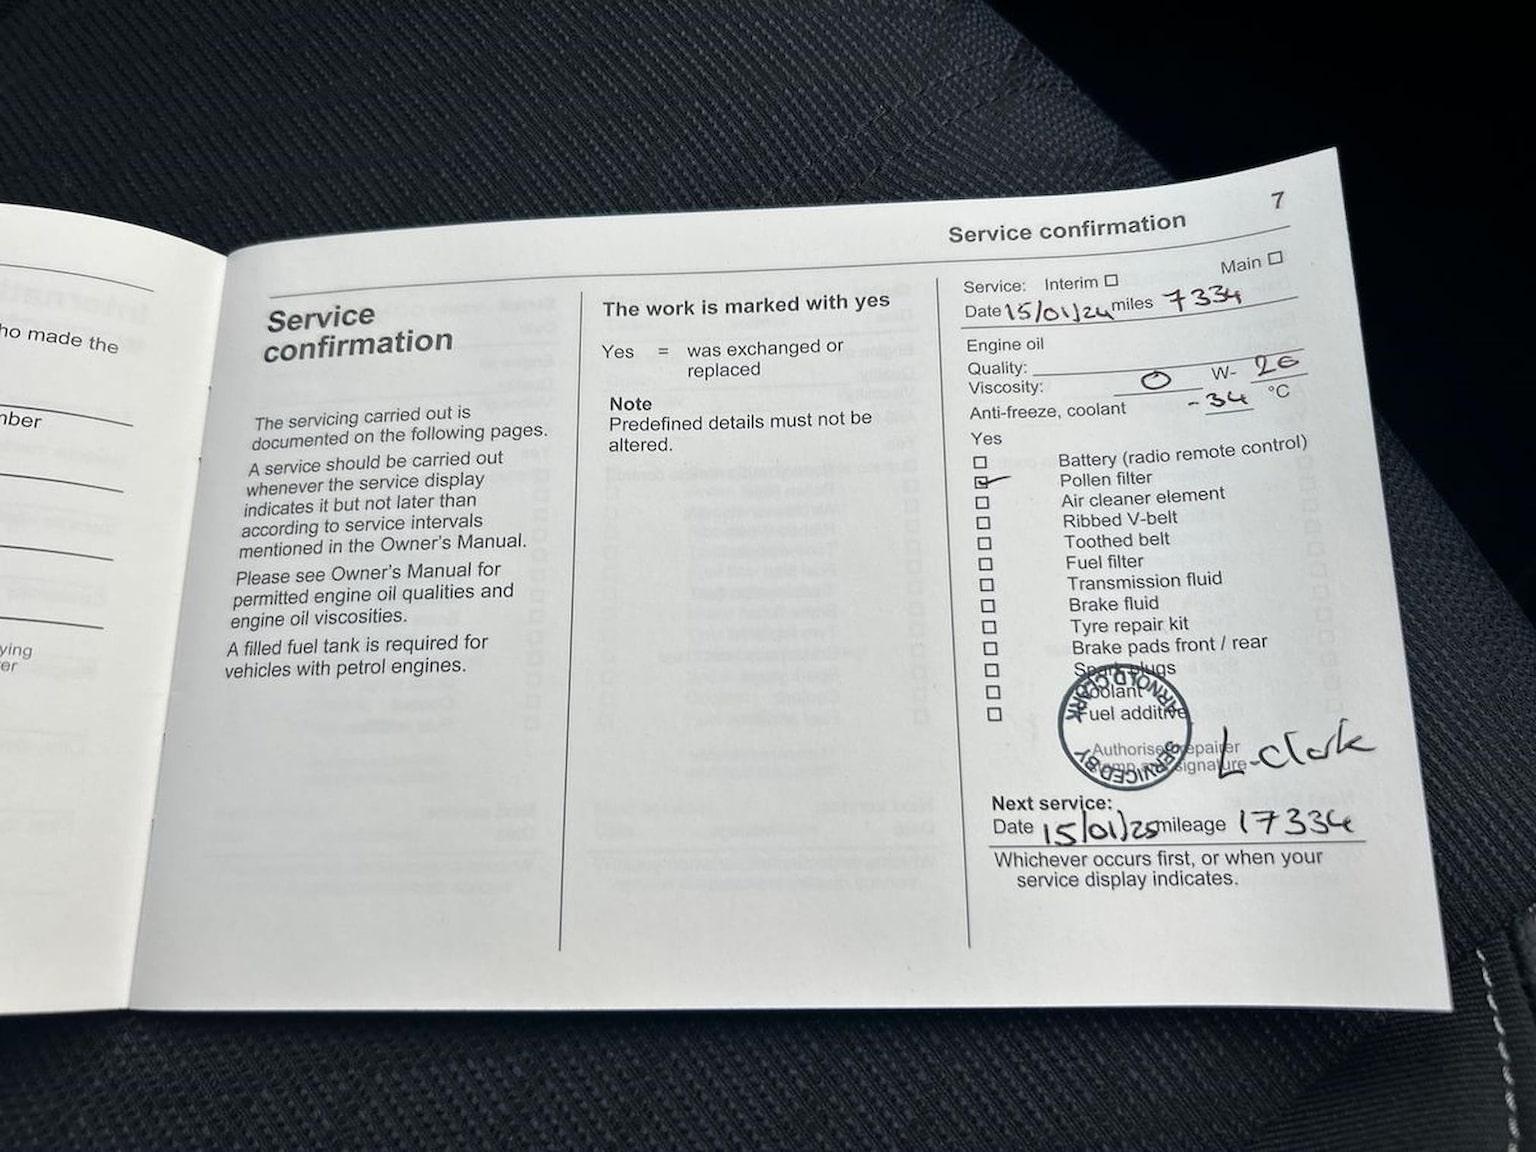 ho made the
nber
ying
er
Service
confirmation
The servicing carried out is
documented on the following pages.
A service should be carried out
whenever the service display
indicates it but not later than
according to service intervals
mentioned in the Owner's Manual.
Please see Owner's Manual for
permitted engine oil qualities and
engine oil viscosities.
A filled fuel tank is required for
vehicles with petrol engines.
The work is marked with yes
Yes = was exchanged or
replaced
Note
Predefined details must not be
altered.
Service confirmation 7
Service: Interim ☐ Main ☐
Date 15/01/24 miles 7334
Engine oil
Quality:
Viscosity: 0 W- 20
Anti-freeze, coolant -34 °C
Yes
☐ Battery (radio remote control)
☑ Pollen filter
☐ Air cleaner element
☐ Ribbed V-belt
☐ Toothed belt
☐ Fuel filter
☐ Transmission fluid
☐ Brake fluid
☐ Tyre repair kit
☐ Brake pads front / rear
☐ Spark plugs
☐ Coolant
☐ Fuel additive
ARNOLD CLARK
SERVICED BY
Authorised repairer
stamp and signature
L-Clark
Next service:
Date 15/01/25 mileage 17334
Whichever occurs first, or when your
service display indicates.